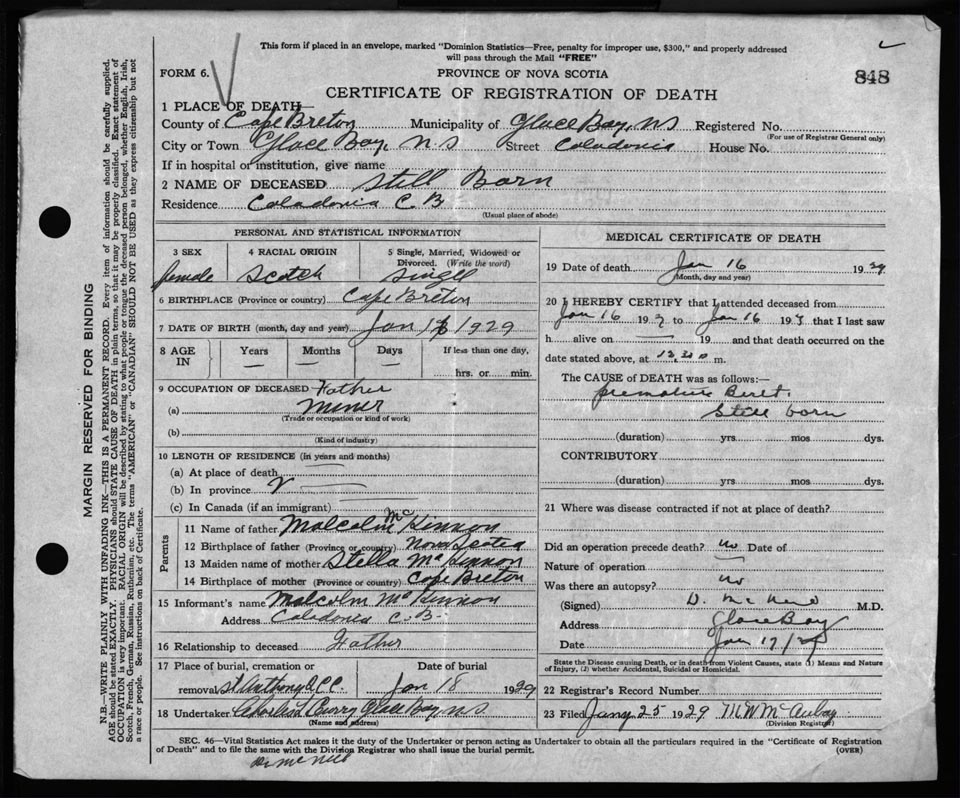 This form if placed in an envelope, marked "Dominion Statistics—Free, penalty for improper use, $300," and properly addressed
will pass through the Mail "FREE"
FORM 6.
PROVINCE OF NOVA SCOTIA
848
CERTIFICATE OF REGISTRATION OF DEATH
1 PLACE OF DEATH—
County of Cape Breton Municipality of Glace Bay, NS Registered No.
(For use of Registrar General only)
City or Town Glace Bay, N.S Street Caladonia House No.
If in hospital or institution, give name
2 NAME OF DECEASED Still Born
Residence Caladonia C.B
(Usual place of abode)
PERSONAL AND STATISTICAL INFORMATION
3 SEX 4 RACIAL ORIGIN 5 Single, Married, Widowed or
Divorced. (Write the word)
female Scotch Singel
6 BIRTHPLACE (Province or country) Cape Breton
7 DATE OF BIRTH (month, day and year) Jan 16 1929
8 AGE IN Years Months Days If less than one day,
— — — hrs. or min.
9 OCCUPATION OF DECEASED Father
(a) Miner
(Trade or occupation or kind of work)
(b)
(Kind of industry)
10 LENGTH OF RESIDENCE (in years and months)
(a) At place of death
(b) In province
(c) In Canada (if an immigrant)
Parents
11 Name of father Malcolm McKinnon
12 Birthplace of father (Province or country) Nova Scotia
13 Maiden name of mother Stella McKinnon
14 Birthplace of mother (Province or country) Cape Breton
15 Informant's name Malcolm McKinnon
Address Caledonia C.B.
16 Relationship to deceased Father
17 Place of burial, cremation or Date of burial
removal St Anthony R.C.C. Jan 18 1929
18 Undertaker Charles L Curry Glace Bay, NS
(Name and address)
MEDICAL CERTIFICATE OF DEATH
19 Date of death Jan 16 1929
(Month, day and year)
20 I HEREBY CERTIFY that I attended deceased from
Jan 16 19 to Jan 16 19 that I last saw
h alive on — 19 and that death occurred on the
date stated above, at 12.30 m.
The CAUSE of DEATH was as follows:—
premature
Still born
(duration) yrs. mos dys.
CONTRIBUTORY
(duration) yrs. mos. dys.
21 Where was disease contracted if not at place of death?
Did an operation precede death? no Date of
Nature of operation
Was there an autopsy? no
(Signed) D. M.D.
Address Glace Bay
Date Jan 17/29
State the Disease causing Death, or in death from Violent Causes, state (1) Means and Nature
of Injury, (2) whether Accidental, Suicidal or Homicidal.
22 Registrar's Record Number
23 Filed Jany 25 1929
(Division Registrar)
SEC. 46—Vital Statistics Act makes it the duty of the Undertaker or person acting as Undertaker to obtain all the particulars required in the "Certificate of Registration
of Death" and to file the same with the Division Registrar who shall issue the burial permit.
(OVER)
Dr McNeil
MARGIN RESERVED FOR BINDING
N.B.—WRITE PLAINLY WITH UNFADING INK—THIS IS A PERMANENT RECORD. Every item of information should be carefully supplied.
AGE should be stated EXACTLY. PHYSICIANS should STATE CAUSE OF DEATH in plain terms, so that it may be properly classified. Exact statement of
OCCUPATION is very important. RACIAL ORIGIN will be described by stating to what people or tongue the deceased person belonged, whether English, Irish,
Scotch, French, German, Russian, Ruthenian, etc. The terms "AMERICAN" or "CANADIAN" SHOULD NOT BE USED as they express citizenship but not
a race or people. See instructions on back of Certificate.